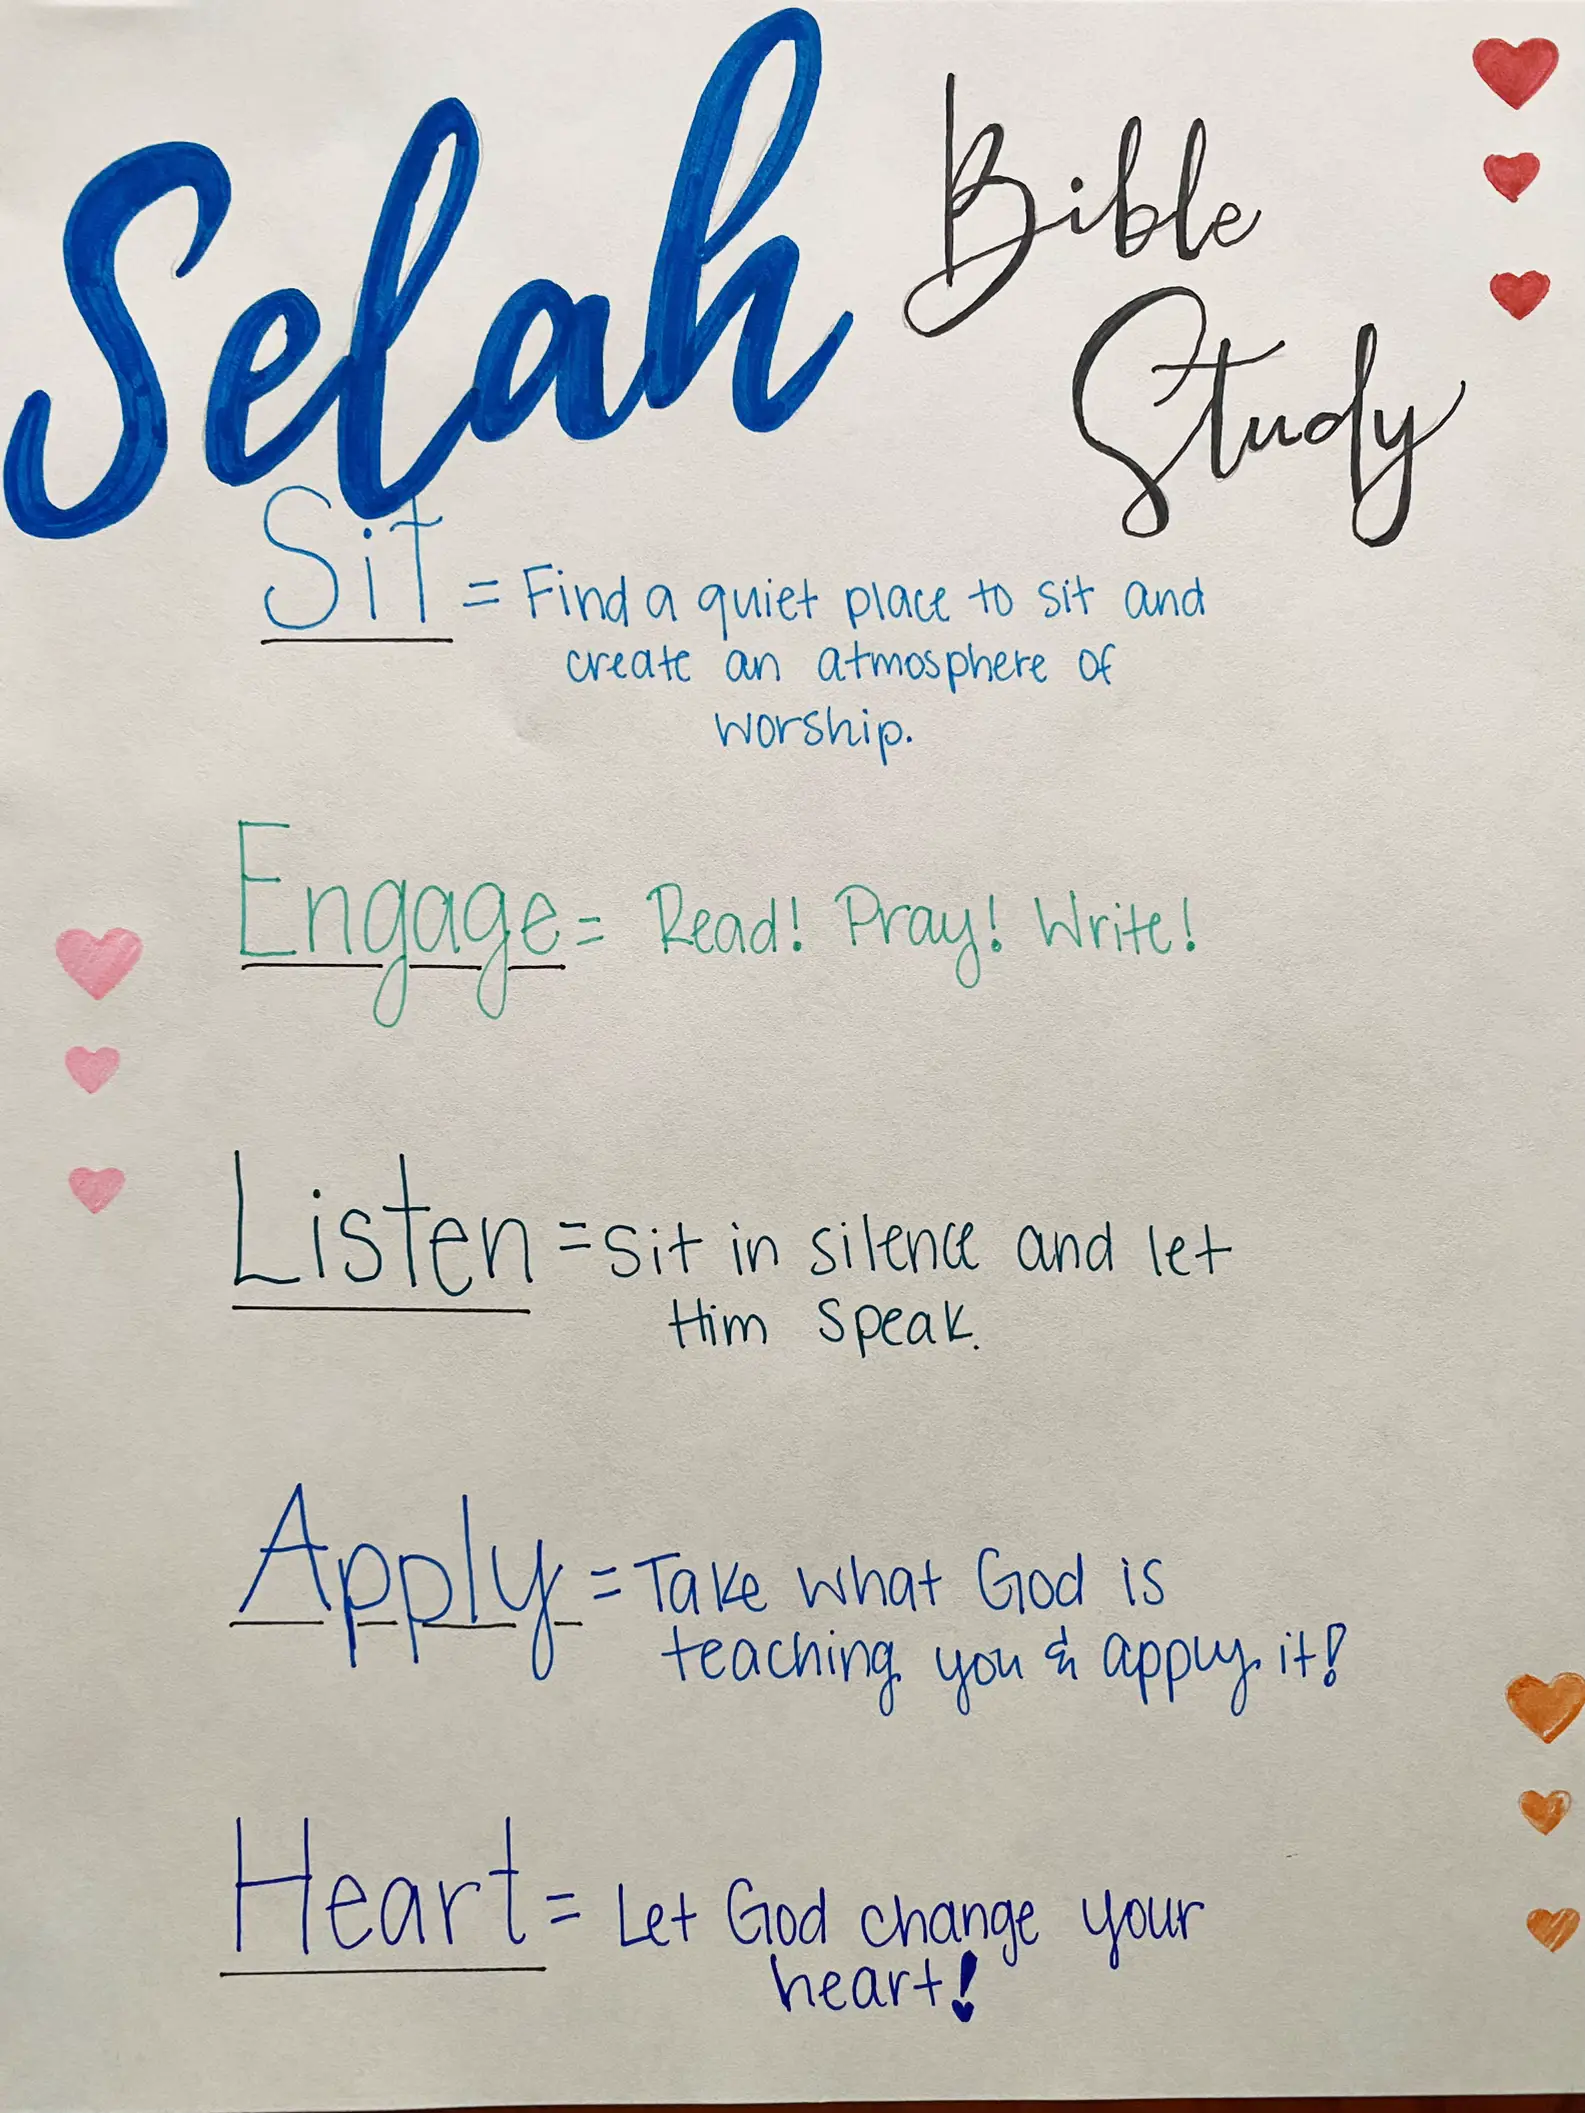 Selah Bible
Study
Sit = Find a quiet place to sit and
create an atmosphere of
worship.
Engage = Read! Pray! Write!
Listen = sit in silence and let
Him speak.
Apply = Take what God is
teaching you & apply it!
Heart = Let God change your
heart!